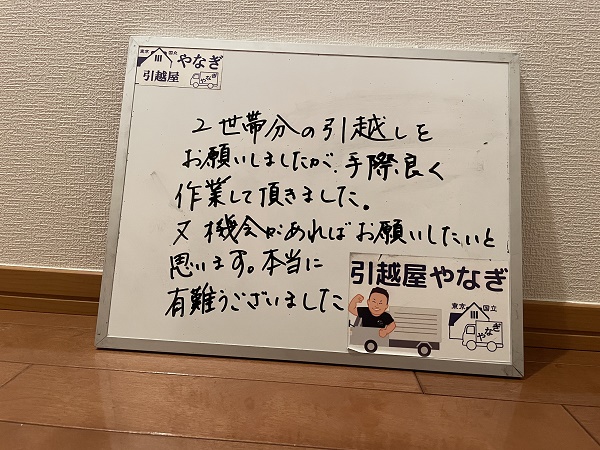 東京 国立 やなぎ
引越屋 やなぎ
2世帯分の引越しを
お願いしましたが、手際良く
作業して頂きました。
又機会があればお願いしたいと
思います。本当に
有難うございました
引越屋やなぎ
東京 国立
やなぎ